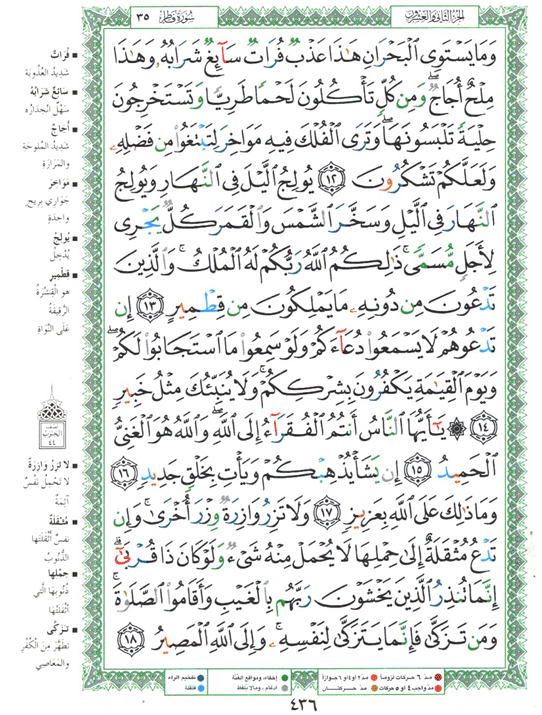 الجزء الثاني والعشرون
سورة فاطر
٣٥
وَمَا يَسْتَوِى ٱلْبَحْرَانِ هَٰذَا عَذْبٌ فُرَاتٌ سَآئِغٌ شَرَابُهُۥ وَهَٰذَا
مِلْحٌ أُجَاجٌ ۖ وَمِن كُلٍّ تَأْكُلُونَ لَحْمًا طَرِيًّا وَتَسْتَخْرِجُونَ
حِلْيَةً تَلْبَسُونَهَا ۖ وَتَرَى ٱلْفُلْكَ فِيهِ مَوَاخِرَ لِتَبْتَغُوا۟ مِن فَضْلِهِۦ
وَلَعَلَّكُمْ تَشْكُرُونَ ١٢ يُولِجُ ٱلَّيْلَ فِى ٱلنَّهَارِ وَيُولِجُ
ٱلنَّهَارَ فِى ٱلَّيْلِ وَسَخَّرَ ٱلشَّمْسَ وَٱلْقَمَرَ كُلٌّ يَجْرِى
لِأَجَلٍ مُّسَمًّى ۚ ذَٰلِكُمُ ٱللَّهُ رَبُّكُمْ لَهُ ٱلْمُلْكُ ۚ وَٱلَّذِينَ
تَدْعُونَ مِن دُونِهِۦ مَا يَمْلِكُونَ مِن قِطْمِيرٍ ١٣ إِن
تَدْعُوهُمْ لَا يَسْمَعُوا۟ دُعَآءَكُمْ وَلَوْ سَمِعُوا۟ مَا ٱسْتَجَابُوا۟ لَكُمْ ۖ
وَيَوْمَ ٱلْقِيَٰمَةِ يَكْفُرُونَ بِشِرْكِكُمْ ۚ وَلَا يُنَبِّئُكَ مِثْلُ خَبِيرٍ
١٤ ۞ يَٰٓأَيُّهَا ٱلنَّاسُ أَنتُمُ ٱلْفُقَرَآءُ إِلَى ٱللَّهِ ۖ وَٱللَّهُ هُوَ ٱلْغَنِىُّ
ٱلْحَمِيدُ ١٥ إِن يَشَأْ يُذْهِبْكُمْ وَيَأْتِ بِخَلْقٍ جَدِيدٍ ١٦
وَمَا ذَٰلِكَ عَلَى ٱللَّهِ بِعَزِيزٍ ١٧ وَلَا تَزِرُ وَازِرَةٌ وِزْرَ أُخْرَىٰ ۚ وَإِن
تَدْعُ مُثْقَلَةٌ إِلَىٰ حِمْلِهَا لَا يُحْمَلْ مِنْهُ شَىْءٌ وَلَوْ كَانَ ذَا قُرْبَىٰٓ ۗ
إِنَّمَا تُنذِرُ ٱلَّذِينَ يَخْشَوْنَ رَبَّهُم بِٱلْغَيْبِ وَأَقَامُوا۟ ٱلصَّلَوٰةَ ۚ
وَمَن تَزَكَّىٰ فَإِنَّمَا يَتَزَكَّىٰ لِنَفْسِهِۦ ۚ وَإِلَى ٱللَّهِ ٱلْمَصِيرُ ١٨
■ فُرَاتٌ
شَدِيدُ العُذُوبَةِ
■ سَائِغٌ شَرَابُهُ
سَهْلٌ انحِدَارُه
■ أُجَاجٌ
شَدِيدُ المُلُوحَةِ
والمَرَارَةِ
■ مَوَاخِرَ
جَوَارِيَ بِرِيحٍ
وَاحِدَةٍ
■ يُولِجُ
يُدْخِلُ
■ قِطْمِيرٍ
هو القِشْرَةُ
الرَّقِيقَةُ
عَلَى النَّوَاةِ
نصف
الحزب
٤٤
■ لَا تَزِرُ وَازِرَةٌ
لا تَحْمِلُ نَفْسٌ
آثِمَةٌ
■ مُثْقَلَةٌ
نفسٌ أَثْقَلَتْهَا
الذُّنُوبُ
■ حِمْلِهَا
ذُنُوبِهَا الَّتِي
أَثْقَلَتْهَا
■ تَزَكَّى
تَطَهَّرَ مِنَ الكُفْرِ
والمَعَاصِي
مدّ ٦ حركات لزوماً
مدّ ٢ أو ٤ أو ٦ جوازاً
إخفاء، ومواقع الغنّة
تفخيم الراء
مدّ واجب ٤ أو ٥ حركات
مدّ حركتان
إدغام، وما لا يلفظ
قلقلة
٤٣٦